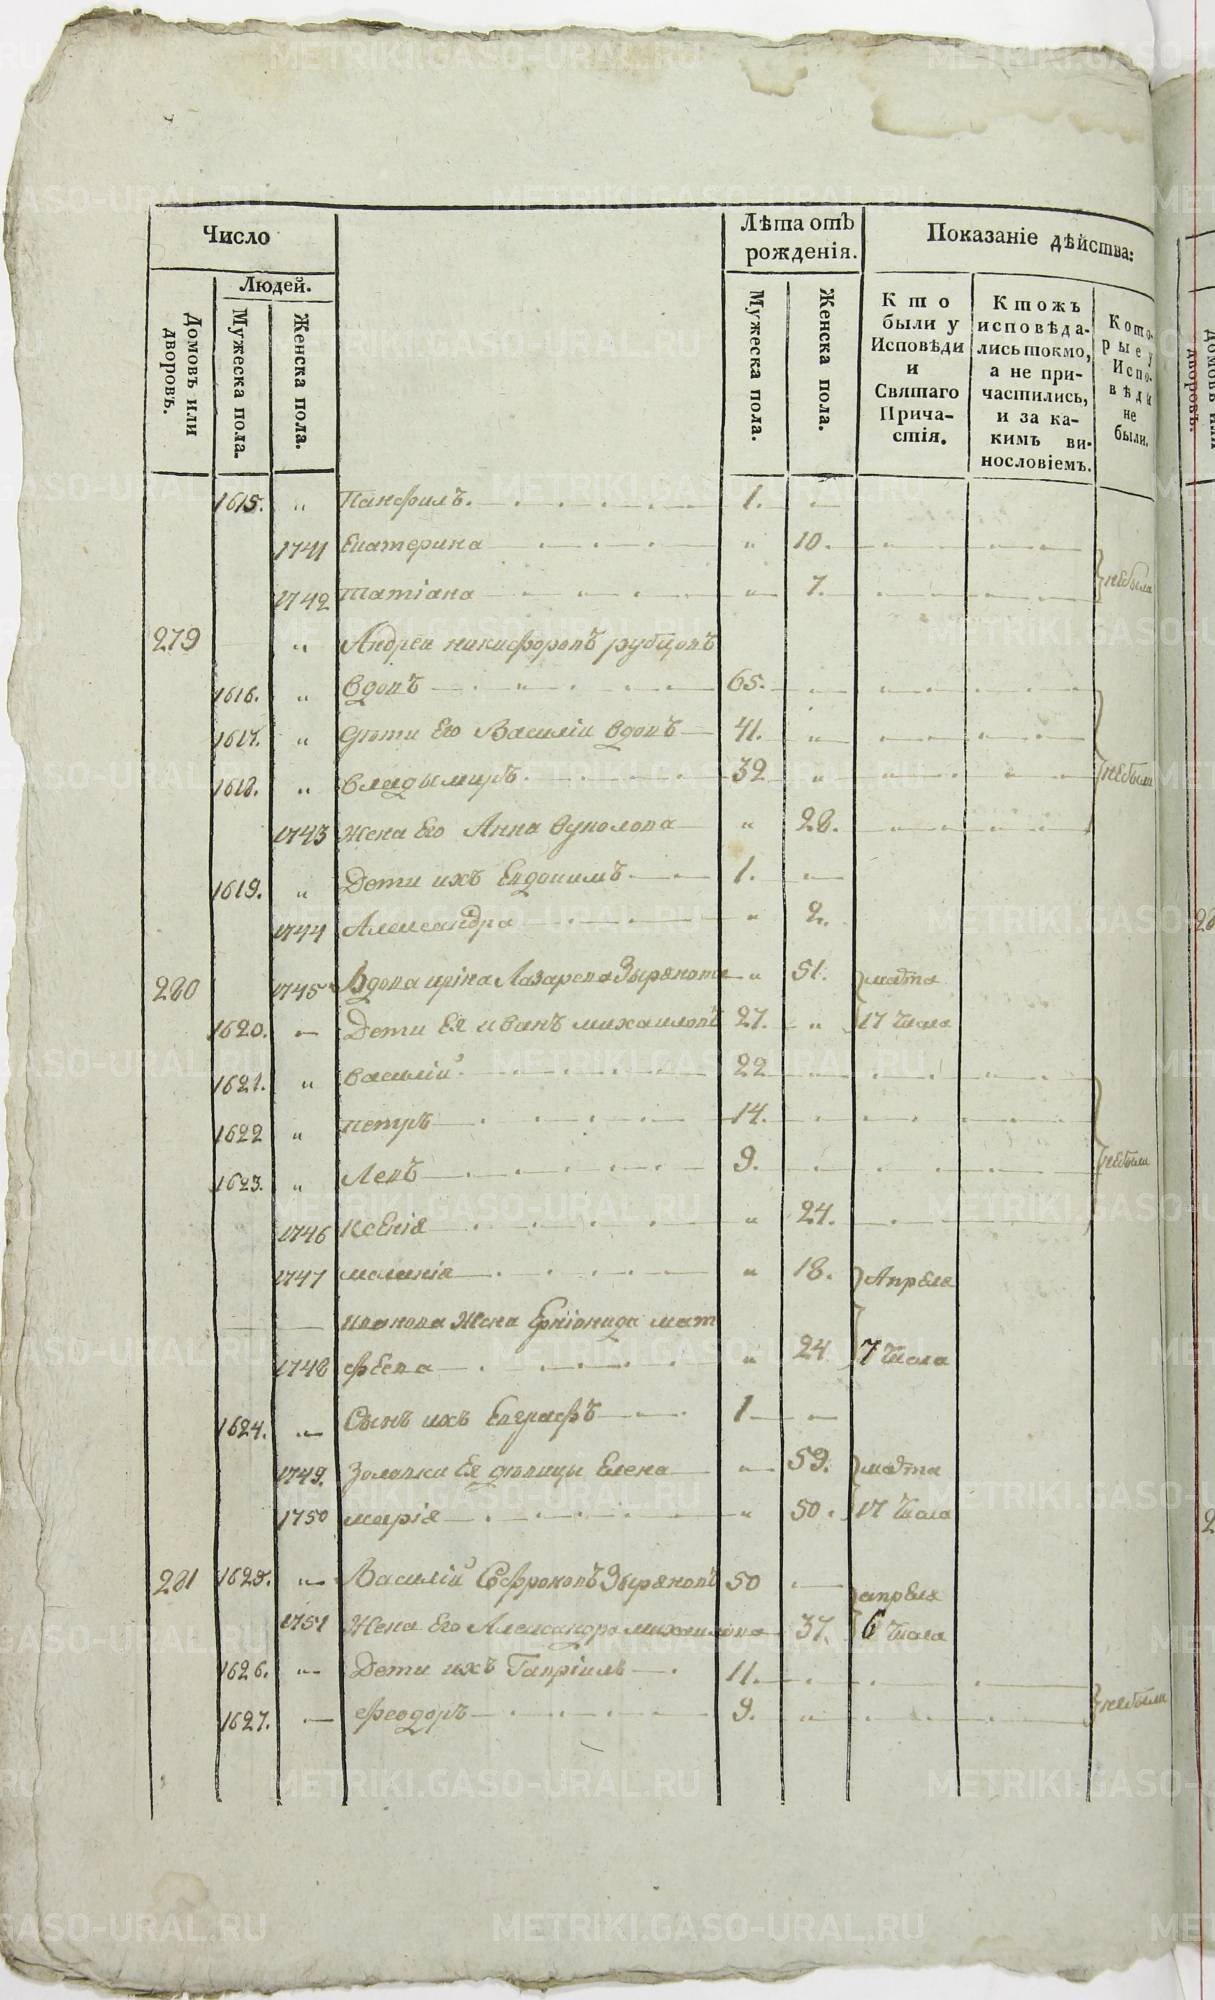 Число
Лѣта отъ рожденія.
Показаніе дѣйства:
Людей.
Домовъ или дворовъ.
Мужеска пола.
Женска пола.
Мужеска пола.
Женска пола.
Кто были у Исповѣди и Святаго Причастія.
Ктожъ исповѣдались токмо, а не причастились, и за какимъ винословіемъ.
Которые у Исповѣди не были.
1615. " Панфилъ. 1.
1741 Екатерина " 10.
1742 Татіана " 7. небыла
279 " Андреи никифоровъ рубцовъ
1616. " вдовъ 65.
1617. " Дѣти Его Василіи вдовъ 41. "
1618. " владымиръ. 32 " небыли
1743 Жена Его Анна вуколова " 28.
1619. " Дети ихъ Евдокимъ 1.
1744 Александра " 2.
280 1745 Вдова иріна Лазарева Зырянова " 51. марта
1620. Дети Ея иванъ михаиловъ 27. " 17 числа
1621. " василій 22
1622 " петръ 14.
1623. " Левъ 9. небыли
1746 Ксенія " 24.
1747 маланія " 18. Апреля
иванова Жена мат
1748 феева " 24 7 числа
1624. " Сынъ ихъ Евграфъ 1
1749. Золовки Ея дѣвицы Елена " 59. марта
1750 марія " 50. 17 числа
281 1625. " Василій Софроновъ Зыряновъ 50 апреля
1751 Жена Его Александра михаилова 37. 6 числа
1626. " Дети ихъ Гавріилъ 11.
1627. Феодоръ 9. " небыли
METRIKI.GASO-URAL.RU